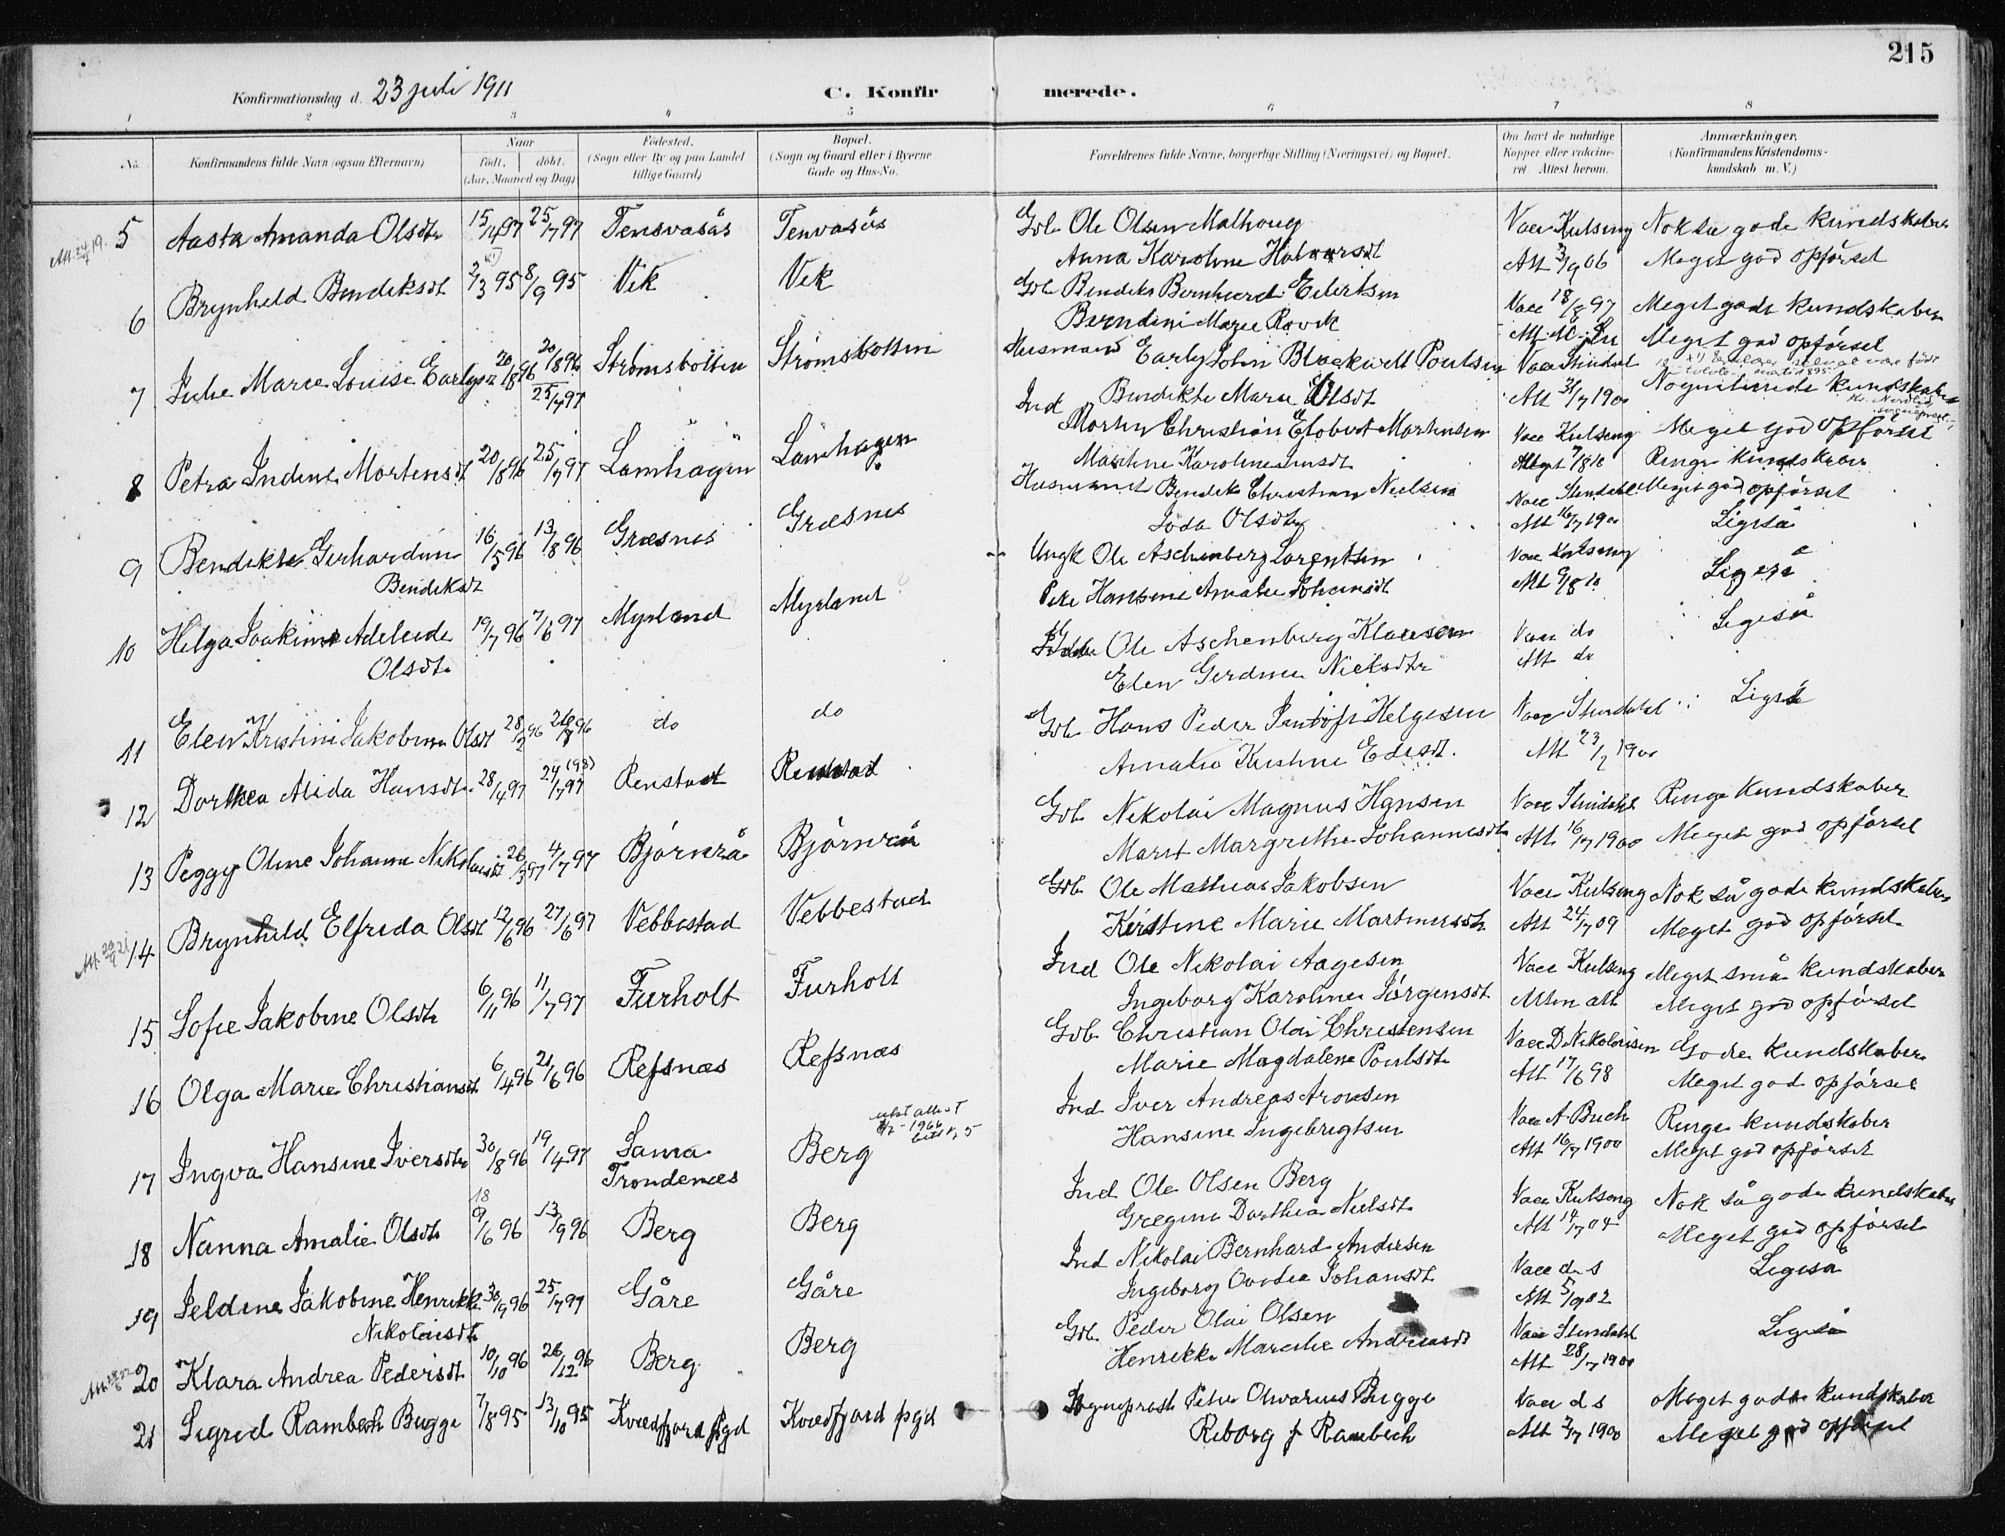 215
Konfirmationsdag d. 23 juli 1911
C. Konfirmerede.
1 2 3 4 5 6 7 8
No.
Konfirmandens fulde Navn (ogsaa Efternavn)
Naar
født. døbt.
(Aar, Maaned og Dag)
Fødested.
(Sogn eller By og paa Landet
tillige Gaard)
Bopæl.
(Sogn og Gaard eller i Byerne
Gade og Hus-No.
Forældrenes fulde Navne, borgerlige Stilling (Næringsvei) og Bopæl.
Om havt de naturlige
Kopper eller vakcine-
ret Attest herom.
Anmærkninger,
(Konfirmandens Kristendoms-
kundskab m. V.)
5 Aasta Amanda Olsdtr 15/4 97 25/7 97 Tensvasås Tenvasås Gbr. Ole Olsen Malhoug Vacc Kulseng Nok så gode kundskaber
Anna Karoline Halvorsdt Att 3/9 06 Meget god opførsel
6 Brynhild Bendiksdt 2/3 95 8/9 95 Vik Vik Gbr. Bendiks Bernhard Eilertsen Vacc 18/8 97 Meget gode kundskaber
Berndini Marie Rovik Meget god opførsel
7 Julie Marie Louise Earlys 20/8 96 20/8 96 Strømsbotten Strømsbotten Husmand Early John Blackwell Poulsen Vacc Stendahl
25/7 97 Bendikte Marie Olsdt Att 1900 kundskaber
8 Petra Indine Mortensdt 20/8 96 25/7 97 Lamhagen Lamhagen Ind Morten Christian Elobert Mortensen Vacc Kulseng Meget god opførsel
Ringe kundskaber
9 Bendikte Gerhardine 16/5 96 13/8 96 Græsnes Græsnes Husmand Bendik Christian Nielsen Vacc Stendahl Meget god opførsel
Bendiksdt Olsdtr Att 16/7 1900 Ligeså
10 Helga Joakime Adeleide 19/7 96 7/6 97 Myrland Myrland Ungk Ole Aschenberg Lorentsen Vacc Kulseng Ligeså
Olsdtr Pike Hansine Amalie Johansdt Att 9/8 10
11 Elen Kristine Jakobine Olsdt 28/2 96 96 do do Ole Aschenberg Klausen Vacc do Ligeså
Elen Gerdine Nielsdtr Att do
12 Dorthea Alida Hansdtr 28/4 97 24/7 97 (98) Renstad Renstad Gbr. Hans Peder Helgesen Vacc Stendahl Ligeså
Amalie Kristine Att 23/2 1900
13 Peggy Oline Johanna Nikolaisdt 26/3 97 4/7 97 Bjørnrå Bjørnrå Gbr. Nikolai Magnus Hansen Vacc Stendahl Ringe Kundskaber
Marit Margrethe Johannesdtr Att 16/7 1900 Meget god opførsel
14 Brynhild Elfrida Olsdt 12/6 96 27/6 97 Vebbestad Vebbestad Gbr. Ole Mathias Jakobsen Vacc Kulseng Nok så gode kundskaber
Kirstine Marie Martinusdtr Att 24/7 09 Meget god opførsel
15 Sofie Jakobine Olsdtr 6/11 96 11/7 97 Furholt Furholt Ind Ole Nikolai Aagesen Vacc Kulseng Meget små kundskaber
Ingeborg Karoline Jørgensdt Uten att Meget god opførsel
16 Olga Marie Christiansdt 6/4 96 21/6 96 Refsnæs Refsnæs Gbr. Christian Olai Christensen Vacc D. Nikolaisen Gode kundskaber
Marie Magdalene Poulsdtr Att 17/6 98 Meget god opførsel
utst attest
1966
17 Ingva Hansine Iversdtr 30/8 96 19/4 97 Sama Berg Ind Iver Andreas Aronsen Vacc A. Buch Ringe kundskaber
Trondenæs Hansine Ingebrigtsen Att 16/7 1900 Meget god opførsel
18 Nanna Amalie Olsdtr 18 9/6 96 13/9 96 Berg Berg Ind Ole Olsen Berg Vacc Kulseng Nok så gode kundskaber
Gregine Dorthea Nielsdtr Att 14/7 04 Meget god opførsel
19 Jeldine Jakobine Henrikke 30/9 96 25/7 97 Gåre Gåre Ind Nikolai Bernhard Andersen Vacc d s Ligeså
Nikolaisdtr Ingeborg Ovidie Johansdt Att 5/9 02
20 Klara Andrea Pedersdt 10/10 96 26/12 96 Berg Berg Gbr. Peder Olai Olsen Vacc Stendahl Ligeså
Henrikke Marselie Andreasdt Att 28/7 1900
21 Sigrid Rambech Bugge 7/8 95 13/10 95 Kvædfjord pgd Kvædfjord pgd Sogneprest Peter Olivarius Bugge Vacc d s Meget gode kundskaber
Riborg f Rambech Att 2/7 1900 Meget god opførsel